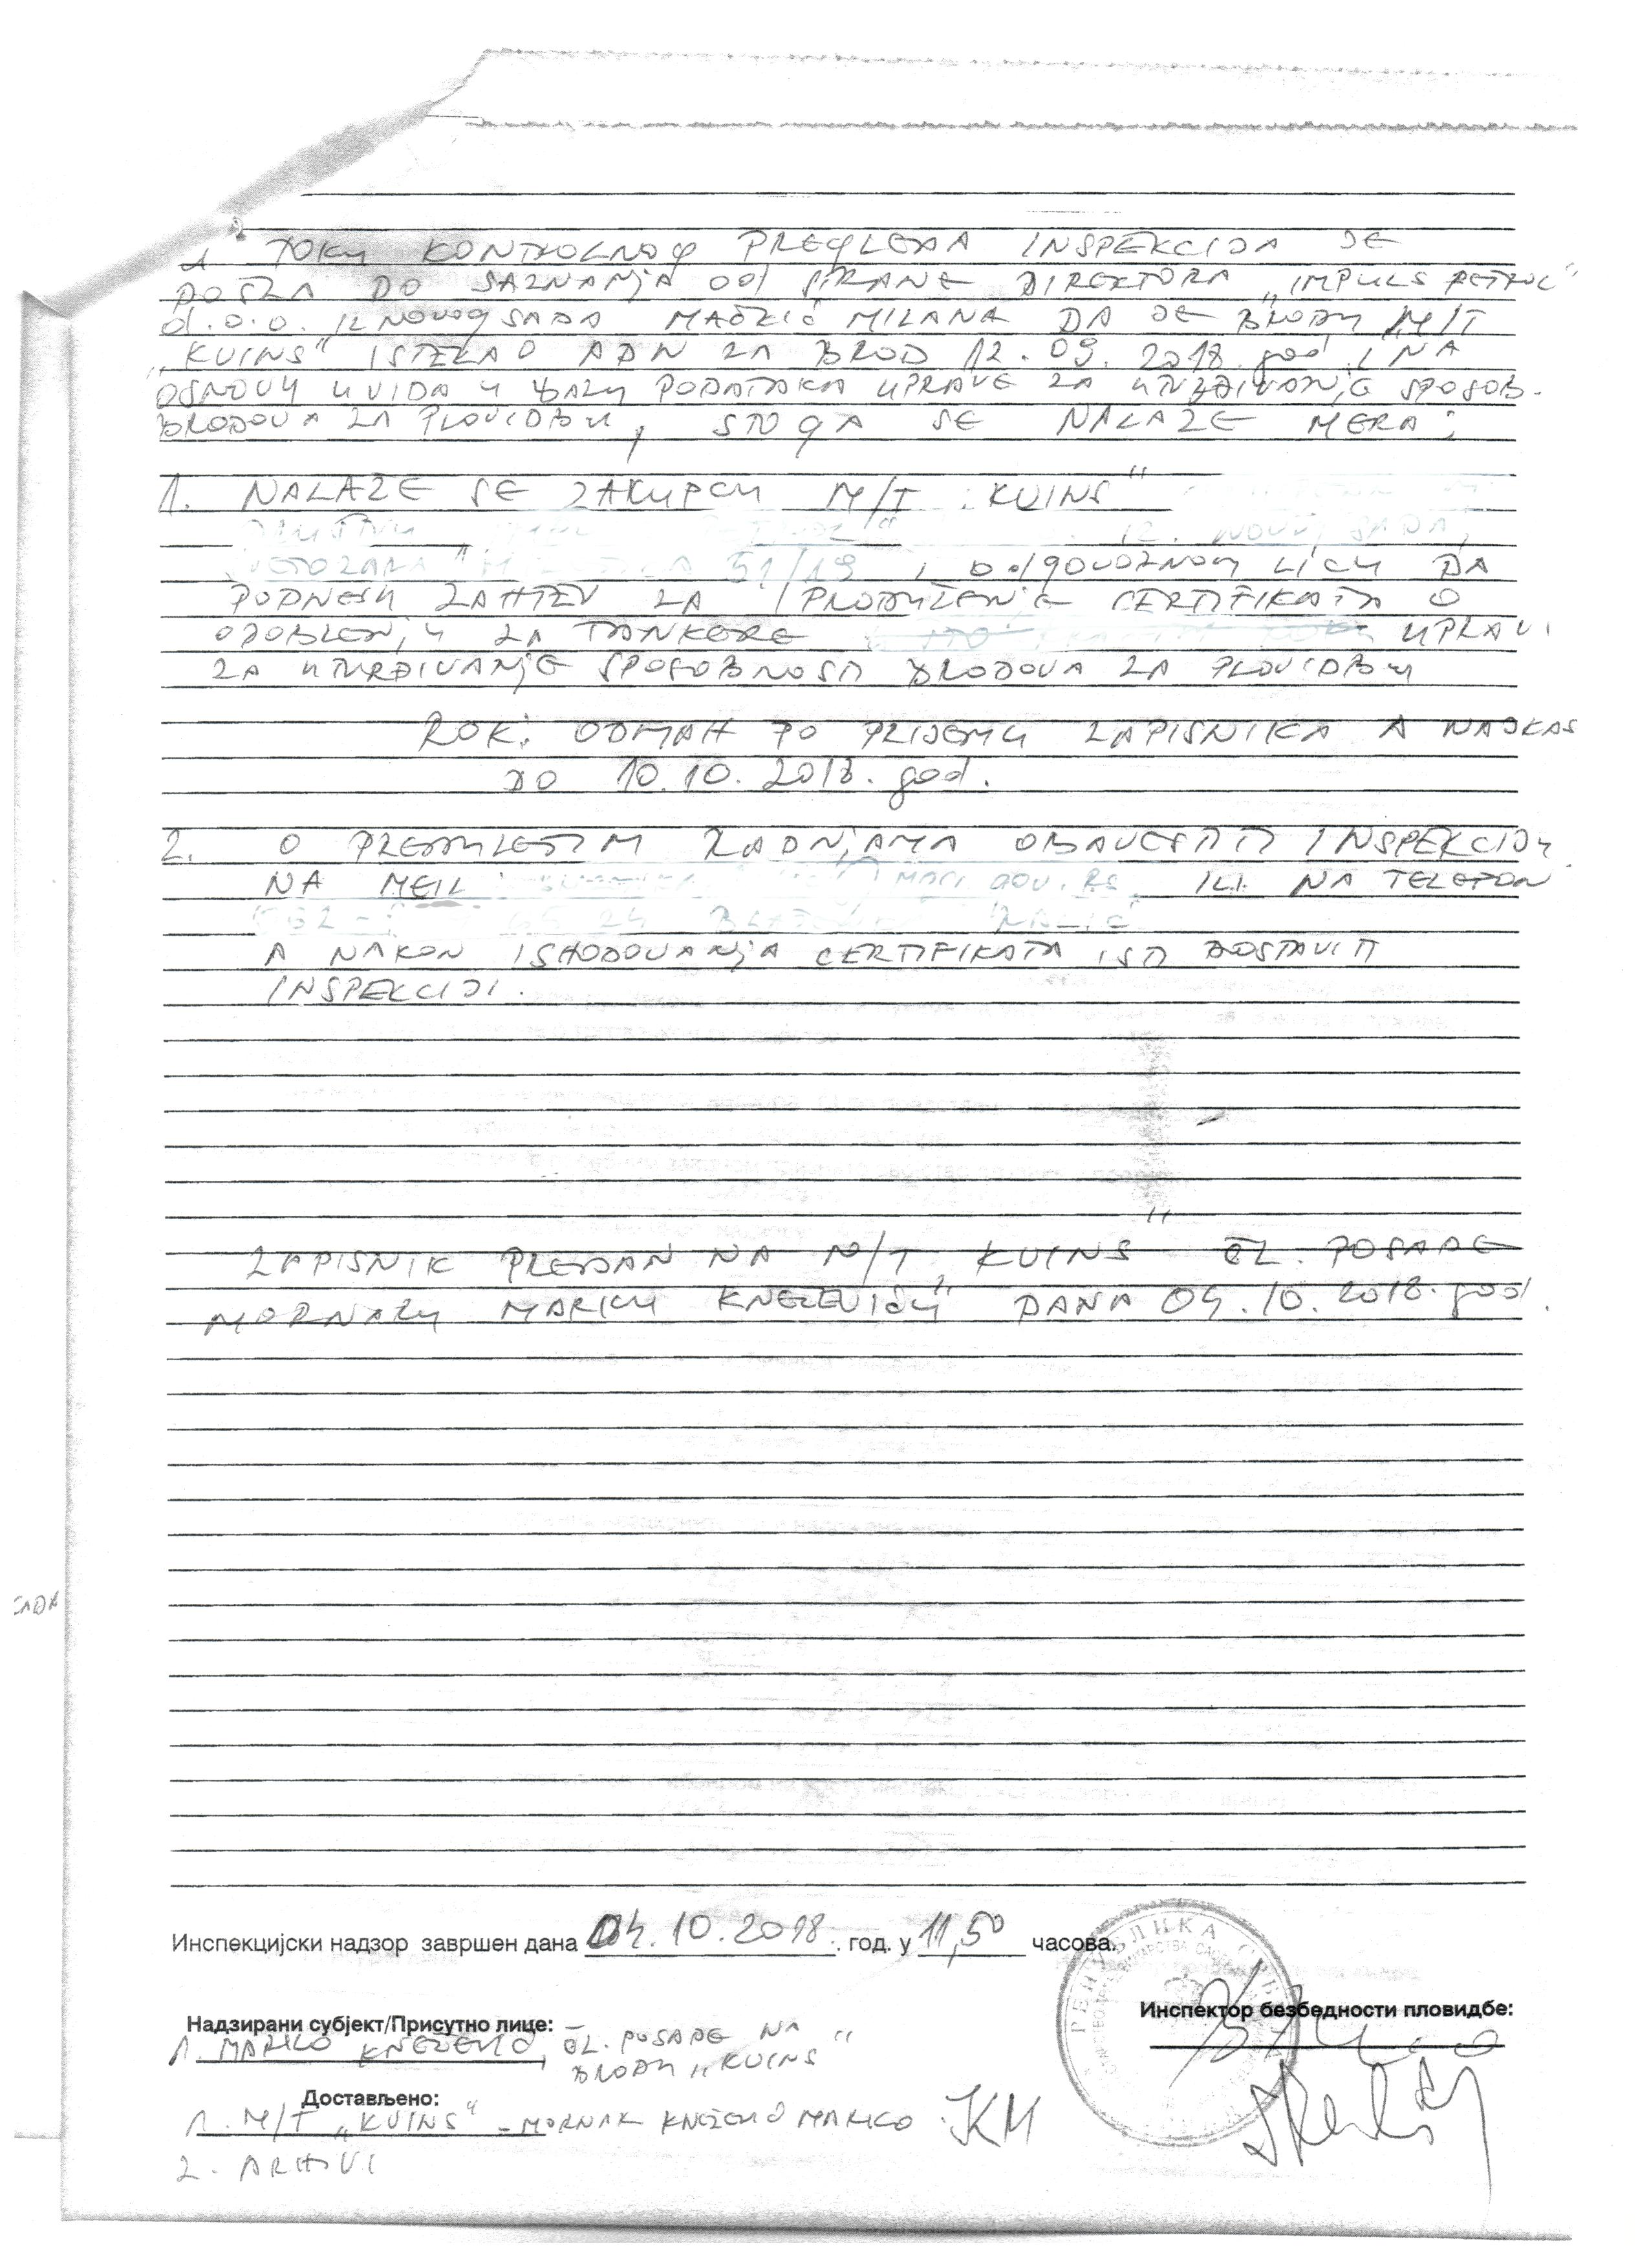 U TOKU KONTROLNOG PREGLEDA INSPEKCIJA JE
DOŠLA DO SAZNANJA OD STRANE DIREKTORA „IMPULS PETROL"
d.o.o. IZ NOVOG SADA MAČKIĆ MILANA DA JE BRODU M/T
„KUINS" ISTEKAO ADN ZA BROD 12.09.2018. god. I NA
OSNOVU UVIDA U BAZU PODATAKA UPRAVE ZA UTVRĐIVANJE SPOSOB.
BRODOVA ZA PLOVIDBU, STOGA SE NALAŽE MERA:
1. NALAŽE SE ZAKUPCU M/T KUINS"
DRUŠTVU IZ NOVOG SADA,
51/19 I ODGOVORNOM LICU DA
PODNESU ZAHTEV ZA PRODUŽENJE CERTIFIKATA O
ODOBRENJU ZA TANKERE UPRAVI
ZA UTVRĐIVANJE SPOSOBNOSTI BRODOVA ZA PLOVIDBU
ROK: ODMAH PO PRIJEMU ZAPISNIKA A NAJKAS
DO 10.10.2018. god.
2. O PREDUZETIM RADNJAMA OBAVESTITI INSPEKCIJU
NA MEIL GOV.RS ILI NA TELEFON
A NAKON ISHODOVANJA CERTIFIKATA ISTI DOSTAVITI
INSPEKCIJI.
ZAPISNIK PREDAN NA M/T KUINS" ČL. POSADE
MORNARU MARKU KNEŽEVIĆU DANA 04.10.2018. god.
Инспекцијски надзор завршен дана 04.10.2018. год. у 11,50 часова.
Надзирани субјект/Присутно лице: Инспектор безбедности пловидбе:
1. MARKO KNEŽEVIĆ, ČL. POSADE NA
BRODU „KUINS"
Достављено:
1. M/T „KUINS" – MORNAR KNEŽEVIĆ MARKO KM
2. ARHIVI
РЕПУБЛИКА